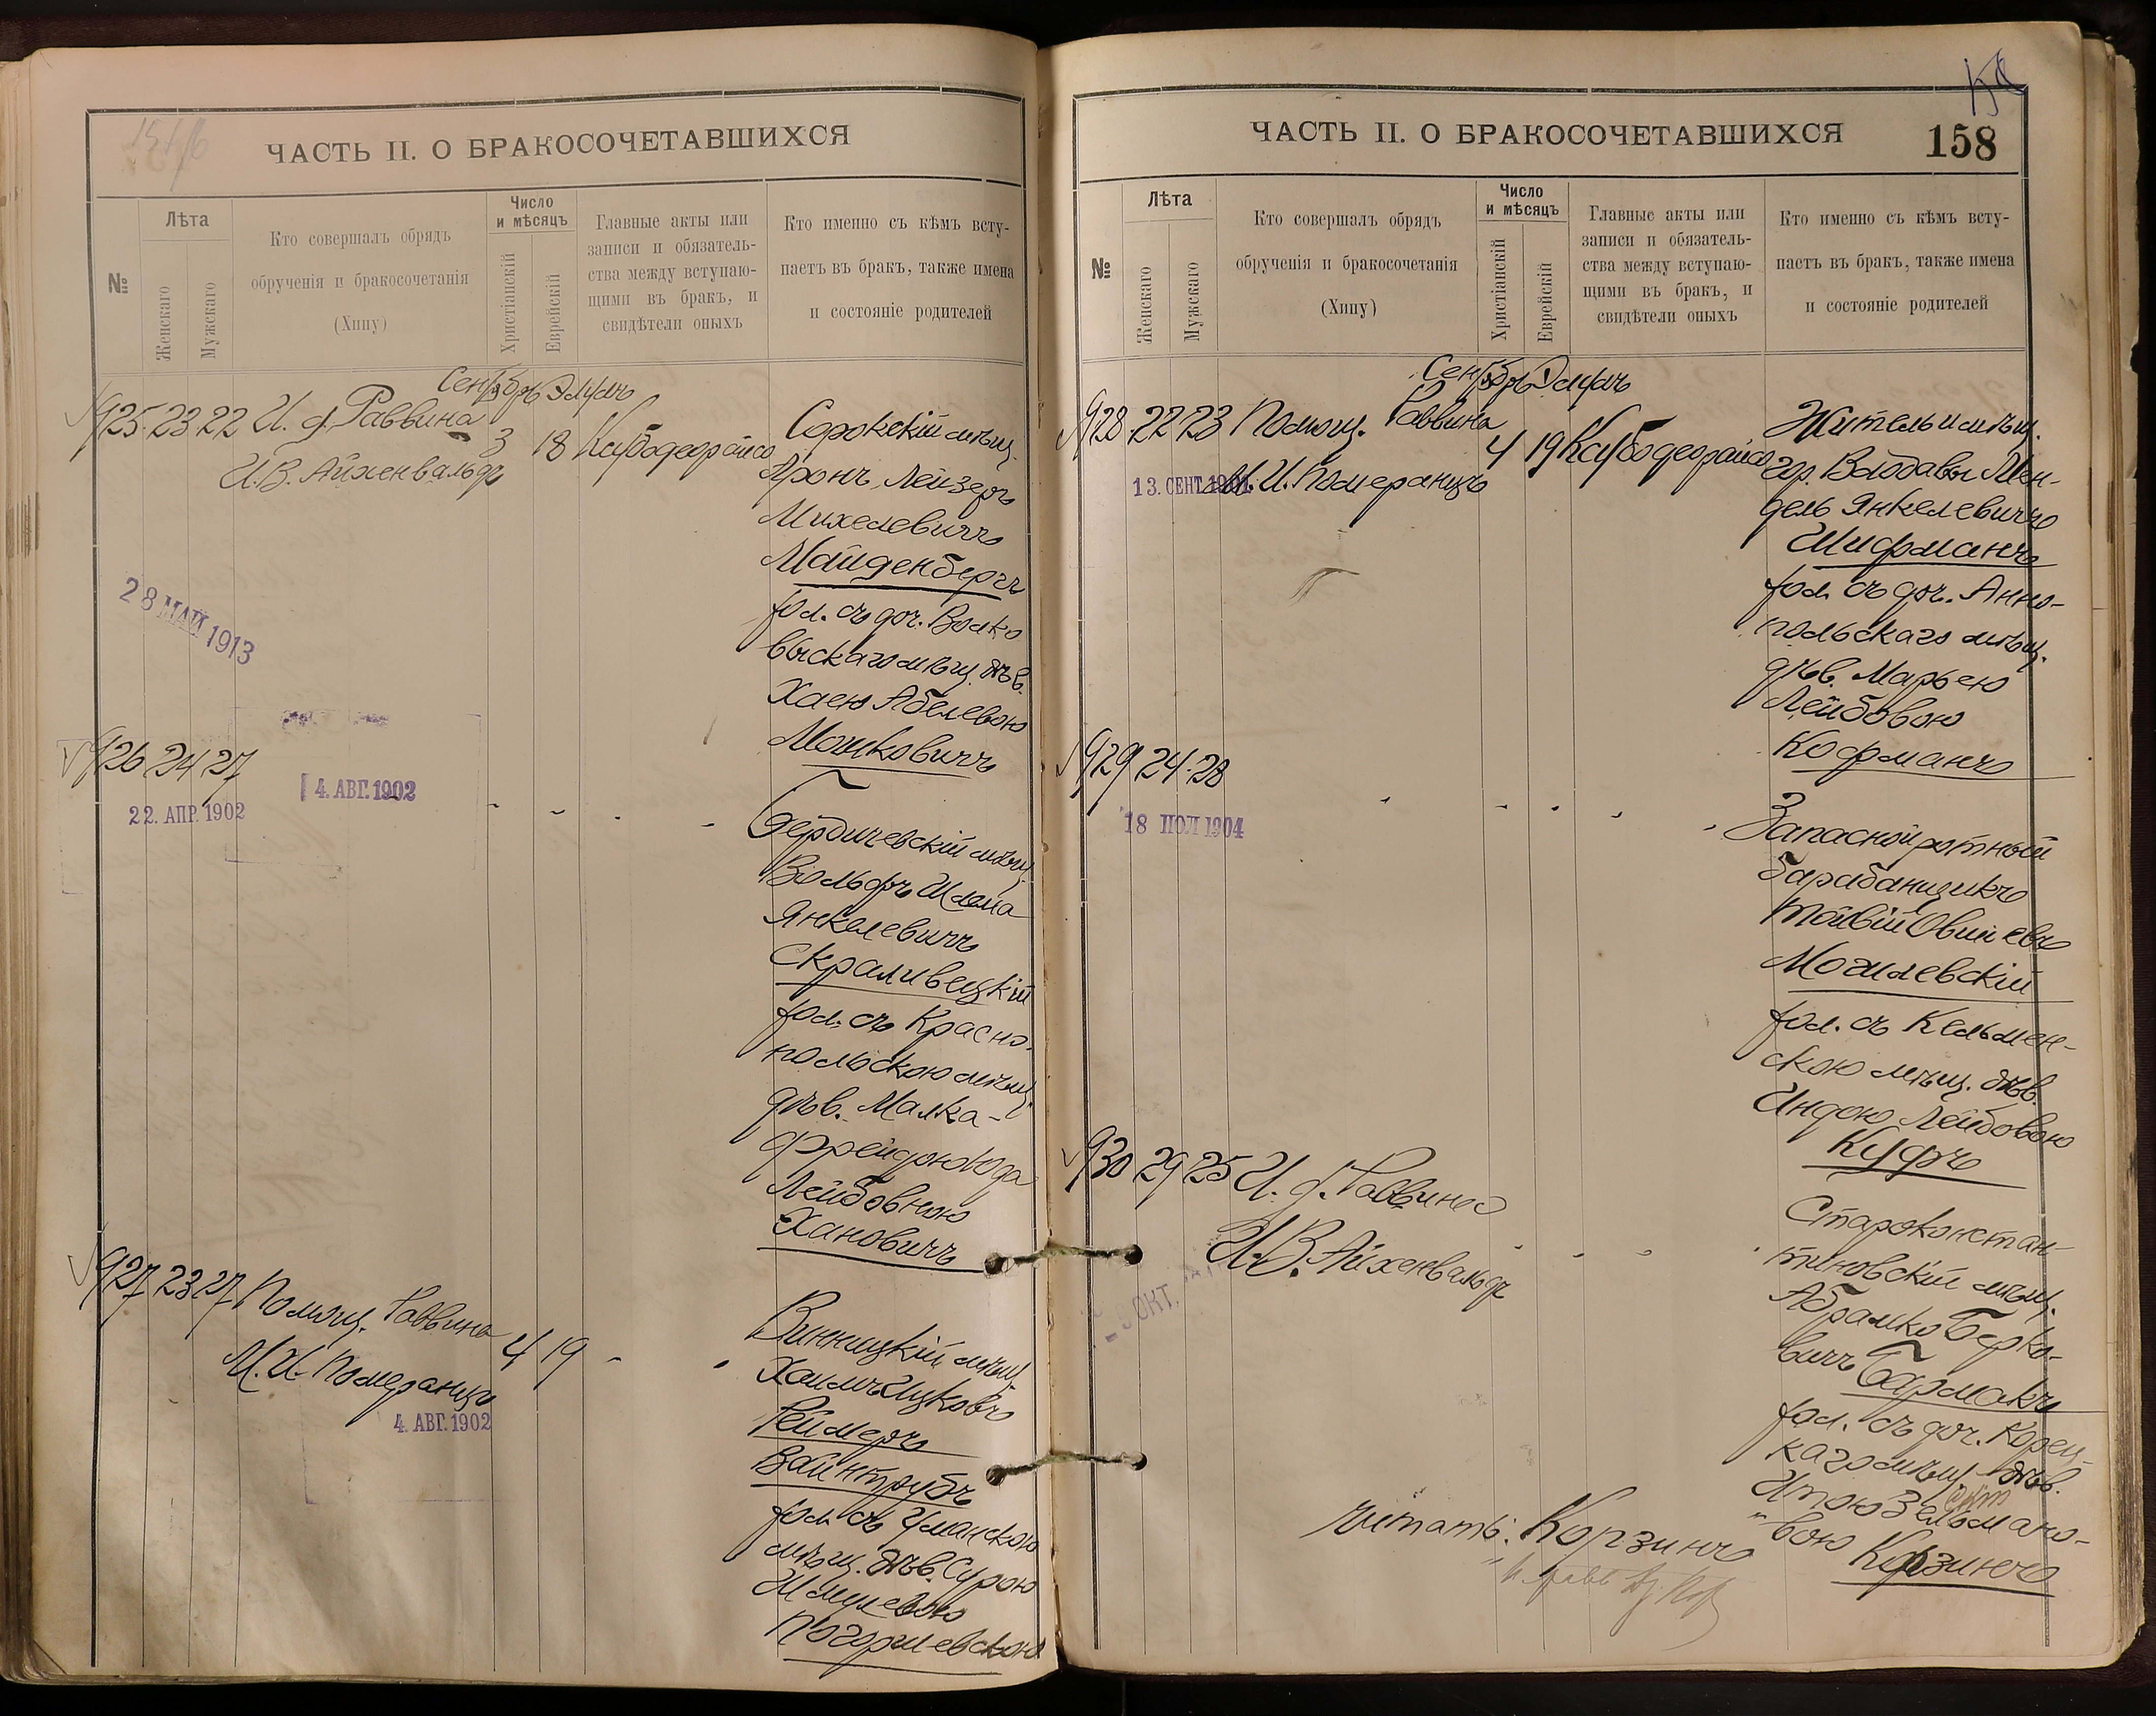 ЧАСТЬ II. О БРАКОСОЧЕТАВШИХСЯ
№
Лѣта
Женскаго
Мужскаго
Кто совершалъ обрядъ
обрученія и бракосочетанія
(Хипу)
Число
и мѣсяцъ
Христіанскій
Еврейскій
Главные акты или
записи и обязатель-
ства между вступаю-
щими въ бракъ, и
свидѣтели оныхъ
Кто именно съ кѣмъ всту-
паетъ въ бракъ, также имена
и состояніе родителей
Сентябрь Элулъ
925. 23 22 И. д. Раввина
И.В. Айхенвальдъ
3 18
Сорокскій мѣщ.
Аронъ Лейзеръ
Михелевичъ
Майденбергъ
хол. съ доч. Волко
выскаго мѣщ. дѣв.
Хаею Абелевою
Мошковичъ
28 МАЙ 1913
926 24 27
4. АВГ. 1902
22. АПР. 1902
Бердичевскій мѣщ.
Вольфъ Шлема
Янкелевичъ
Скраливецкій
хол. съ Красно-
польскою мѣщ.
дѣв. Малка-
Фрейдою Юда
Лейбовною
Хановичъ
927 23 27 Помощ. Раввина 4 19
М. И. Померанцъ
4. АВГ. 1902
Винницкій мѣщ.
Хаимъ Ицковъ
Реймеръ
Вайнтрубъ
хол. съ Уманскою
мѣщ. дѣв. Сурою
Шмулевою
Погоршевскою
ЧАСТЬ II. О БРАКОСОЧЕТАВШИХСЯ
158
№
Лѣта
Женскаго
Мужскаго
Кто совершалъ обрядъ
обрученія и бракосочетанія
(Хипу)
Число
и мѣсяцъ
Христіанскій
Еврейскій
Главные акты или
записи и обязатель-
ства между вступаю-
щими въ бракъ, и
свидѣтели оныхъ
Кто именно съ кѣмъ всту-
паетъ въ бракъ, также имена
и состояніе родителей
Сентябрь Элулъ
928 22 23 Помощ. Раввина
М. И. Померанцъ
4 19
13. СЕНТ. 1901
Житель и мѣщ.
гор. Влодавы Мен-
дель Янкелевичъ
Шифманъ
хол. съ доч. Анно-
польскаго мѣщ.
дѣв. Марьею
Лейбовою
Кофманъ
929 24 28
18 ІЮЛ 1904
Запасной ротный
барабанщикъ
Тойвій Овшіевъ
Могилевскій
хол. съ Кельмен-
скою мѣщ. дѣв.
Индою Лейбовою
Куфъ
930 29 25 И. д. Раввина
И.В. Айхенвальдъ
ОКТ.
Староконстан-
тиновскій мѣщ.
Абрамко Берко-
вичъ Бармакъ
хол. съ доч. Корец-
каго мѣщ. дѣв.
Итою Зельмано-
вою Корзинъ
читать: "Корзинъ"